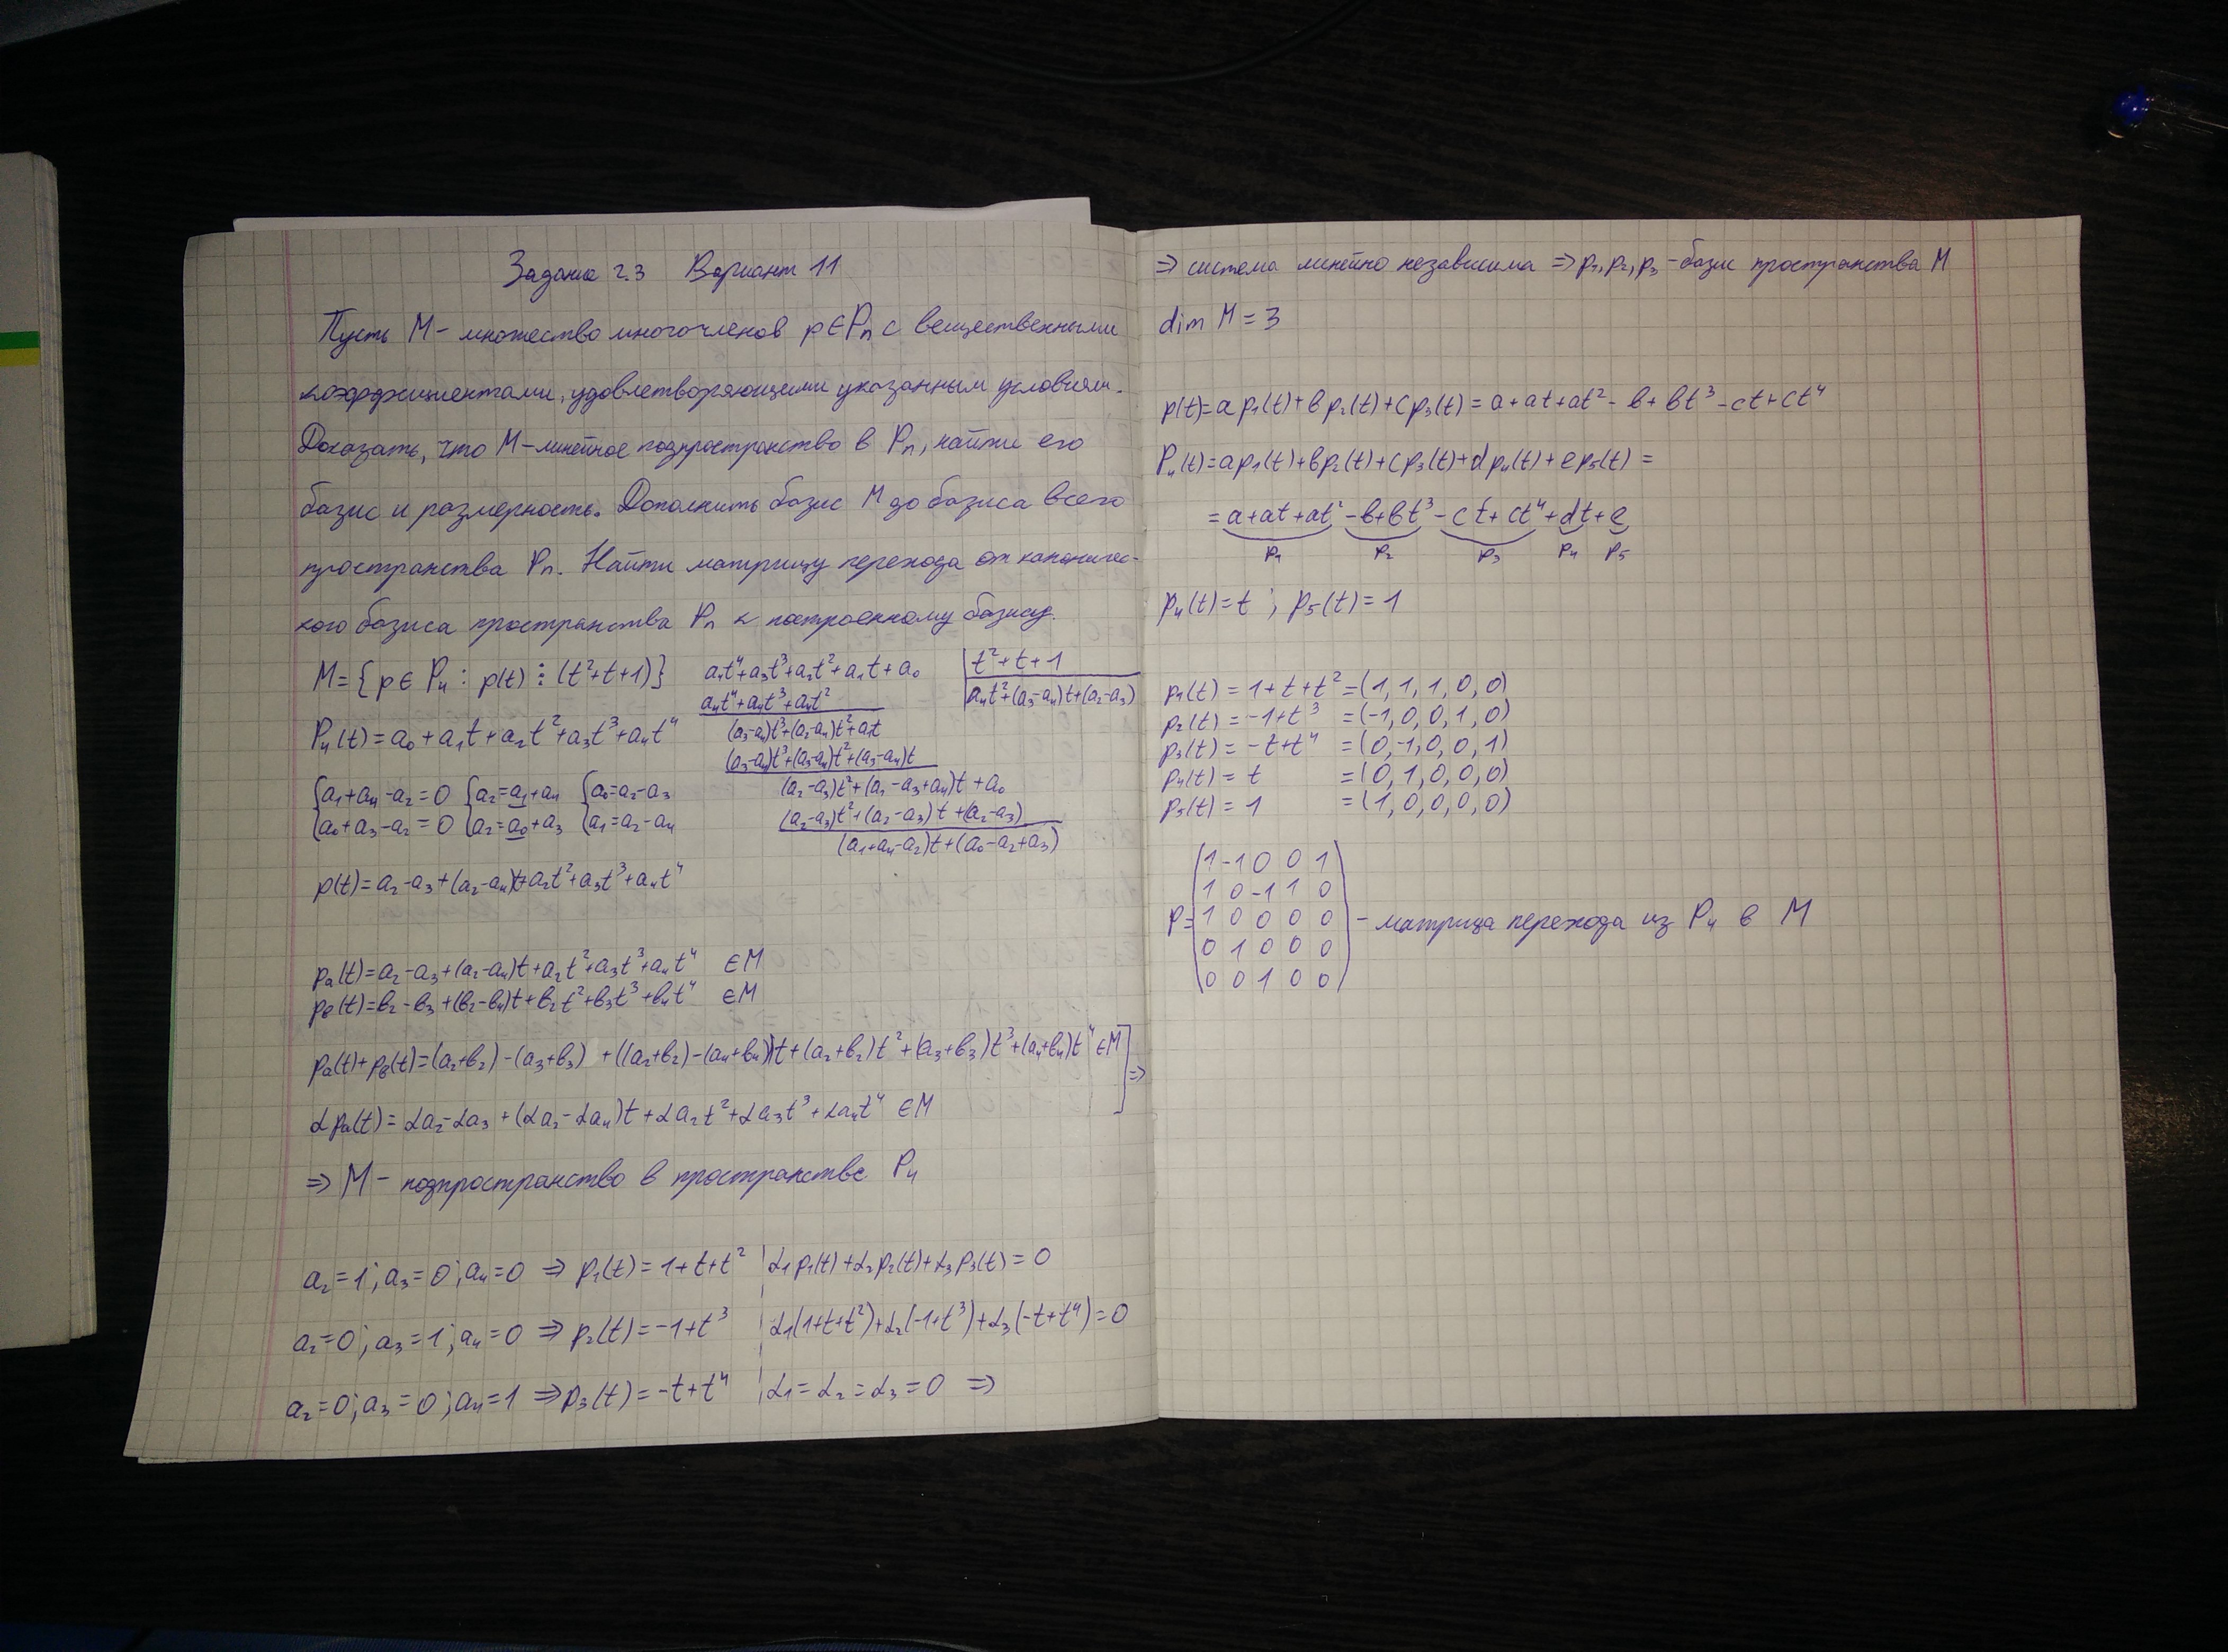 Задание 2.3 Вариант 11
Пусть M - множество многочленов p∈Pₙ с вещественными
коэффициентами, удовлетворяющими указанным условиям.
Доказать, что M - линейное подпространство в Pₙ, найти его
базис и размерность. Дополнить базис M до базиса всего
пространства Pₙ. Найти матрицу перехода от каноничес-
кого базиса пространства Pₙ к построенному базису.
M = {p∈P₄ : p(t) ⋮ (t²+t+1)}
P₄(t) = a₀+a₁t+a₂t²+a₃t³+a₄t⁴
{a₁+a₄-a₂=0 {a₂=a₁+a₄ {a₀=a₂-a₃
{a₀+a₃-a₂=0 {a₂=a₀+a₃ {a₁=a₂-a₄
p(t)=a₂-a₃+(a₂-a₄)t+a₂t²+a₃t³+a₄t⁴
a₄t⁴+a₃t³+a₂t²+a₁t+a₀ | t²+t+1
a₄t⁴+a₄t³+a₄t² | a₄t²+(a₃-a₄)t+(a₂-a₃)
(a₃-a₄)t³+(a₂-a₄)t²+a₁t
(a₃-a₄)t³+(a₃-a₄)t²+(a₃-a₄)t
(a₂-a₃)t²+(a₁-a₃+a₄)t+a₀
(a₂-a₃)t²+(a₂-a₃)t+(a₂-a₃)
(a₁+a₄-a₂)t+(a₀-a₂+a₃)
pₐ(t)=a₂-a₃+(a₂-a₄)t+a₂t²+a₃t³+a₄t⁴ ∈M
p_в(t)=в₂-в₃+(в₂-в₄)t+в₂t²+в₃t³+в₄t⁴ ∈M
pₐ(t)+p_в(t)=(a₂+в₂)-(a₃+в₃)+((a₂+в₂)-(a₄+в₄))t+(a₂+в₂)t²+(a₃+в₃)t³+(a₄+в₄)t⁴ ∈M] ⇒
αpₐ(t)=αa₂-αa₃+(αa₂-αa₄)t+αa₂t²+αa₃t³+αa₄t⁴ ∈M
⇒ M - подпространство в пространстве P₄
a₂=1; a₃=0; a₄=0 ⇒ p₁(t)=1+t+t² | α₁p₁(t)+α₂p₂(t)+α₃p₃(t)=0
a₂=0; a₃=1; a₄=0 ⇒ p₂(t)=-1+t³ | α₁(1+t+t²)+α₂(-1+t³)+α₃(-t+t⁴)=0
a₂=0; a₃=0; a₄=1 ⇒ p₃(t)=-t+t⁴ | α₁=α₂=α₃=0 ⇒
⇒ система линейно независима ⇒ p₁, p₂, p₃ - базис пространства M
dim M = 3
p(t)=ap₁(t)+вp₂(t)+cp₃(t)=a+at+at²-в+вt³-ct+ct⁴
P₄(t)=ap₁(t)+вp₂(t)+cp₃(t)+dp₄(t)+ep₅(t)=
=a+at+at²-в+вt³-ct+ct⁴+dt+e
p₁ p₂ p₃ p₄ p₅
p₄(t)=t; p₅(t)=1
p₁(t)=1+t+t²=(1,1,1,0,0)
p₂(t)=-1+t³ =(-1,0,0,1,0)
p₃(t)=-t+t⁴ =(0,-1,0,0,1)
p₄(t)=t =(0,1,0,0,0)
p₅(t)=1 =(1,0,0,0,0)
1 -1 0 0 1
1 0 -1 1 0
P= 1 0 0 0 0 - матрица перехода из P₄ в M
0 1 0 0 0
0 0 1 0 0